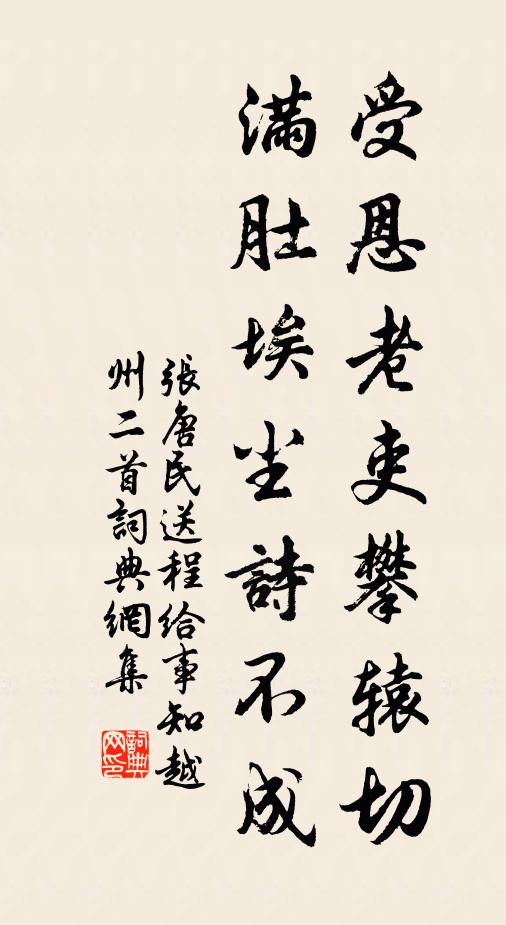 受恩老吏攀辕切
滿肚埃尘詩不成
張唐民送程給事知越
州二首詞典網集
詞典
网印